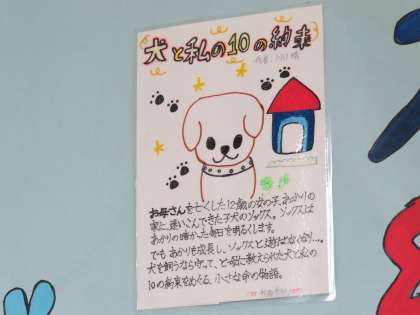 犬と私の10の約束
作者：川口晴
お母さんを亡くした12歳の女の子、あかりの
家に、迷いこんできた子犬のソックス。ソックスは
あかりの暗かった毎日を明るくします。
でもあかりも成長し、ソックスと遊ばなくなり…。
犬を飼うなら守って、と母に教えられた犬と私の
10の約束をめぐる、小さな命の物語。